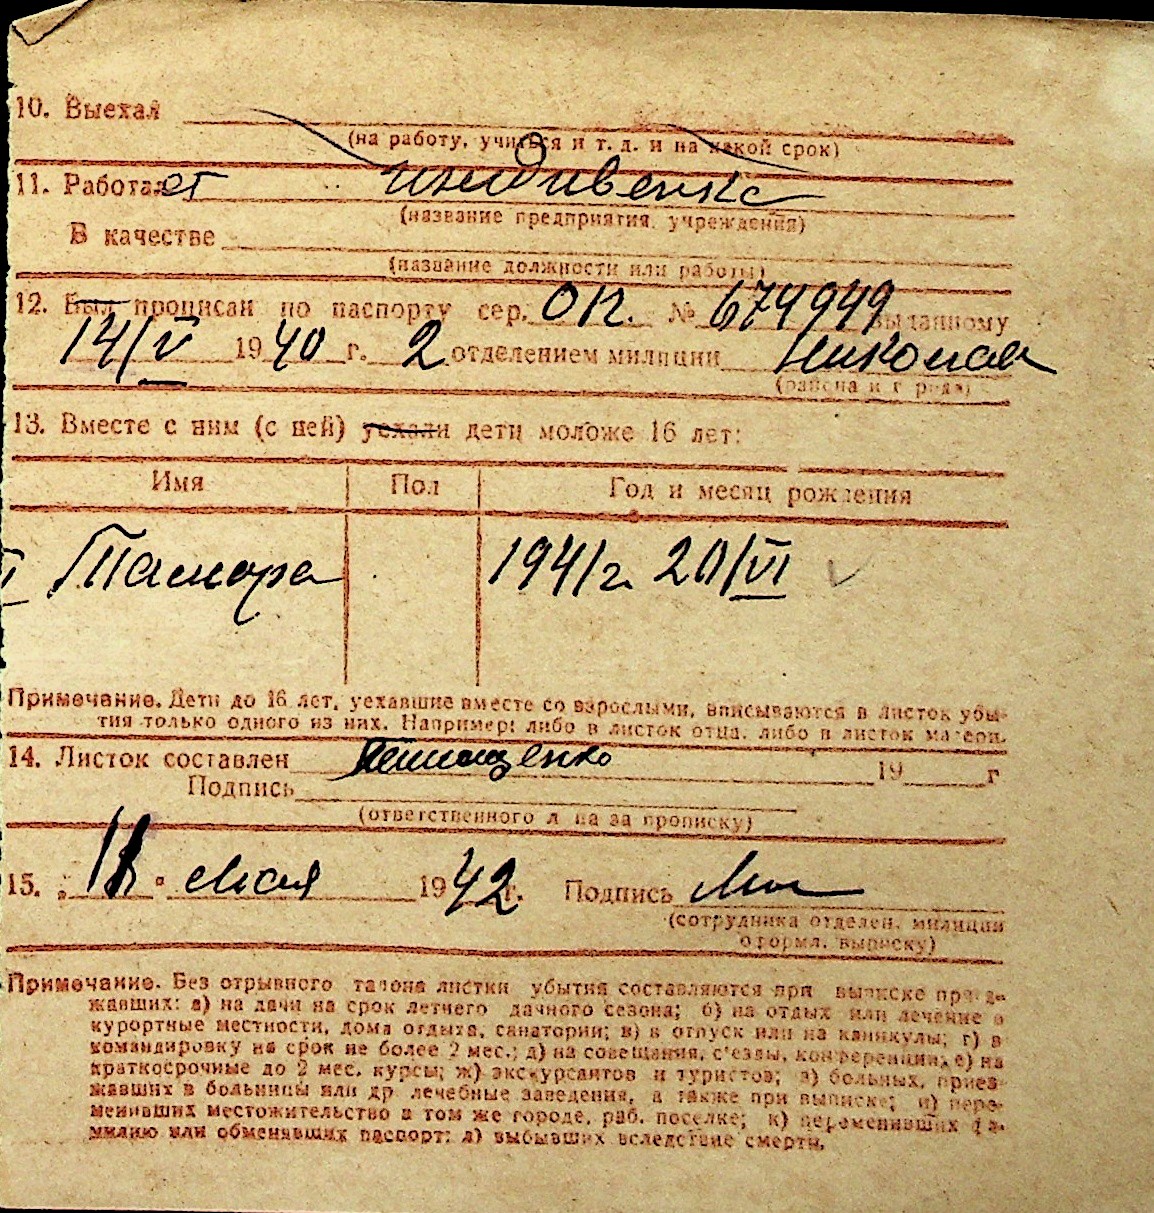 10. Выехал
(на работу, учиться и т. д. и на какой срок)
11. Работает иждивенка
(название предприятия, учреждения)
В качестве
(название должности или работы)
12. Был прописан по паспорту сер. ОП. № 674949 выданному
14/V 1940 г. 2 отделением милиции Николаев
(района и города)
13. Вместе с ним (с ней) уехали дети моложе 16 лет:
Имя Пол Год и месяц рождения
Тамара 1941 г. 20/VI
Примечание. Дети до 16 лет, уехавшие вместе со взрослыми, вписываются в листок убы-
тия только одного из них. Например: либо в листок отца, либо в листок матери.
14. Листок составлен 19 г
Подпись
(ответственного лица за прописку)
15. „18" мая 1942 г. Подпись
(сотрудника отделен. милиции
оформл. выписку)
Примечание. Без отрывного талона листки убытия составляются при выписке приез-
жавших: а) на дачи на срок летнего дачного сезона; б) на отдых или лечение в
курортные местности, дома отдыха, санатории; в) в отпуск или на каникулы; г) в
командировку на срок не более 2 мес.; д) на совещания, с'езды, конференции; е) на
краткосрочные до 2 мес. курсы; ж) экскурсантов и туристов; з) больных, приез-
жавших в больницы или др лечебные заведения, а также при выписке; и) пере-
менивших местожительство в том же городе, раб. поселке; к) переменивших фа-
милию или обменявших паспорт; л) выбывших вследствие смерти.